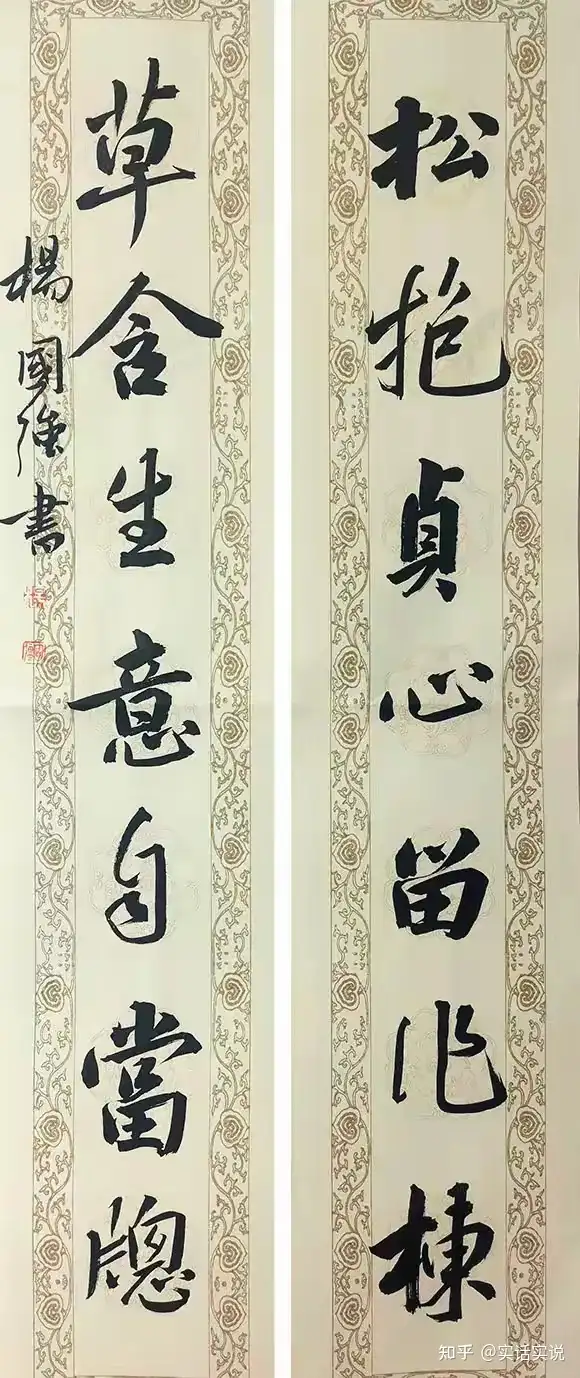 松抱貞心留作棟
草含生意自當牕
楊國強書
知乎 @实话实说